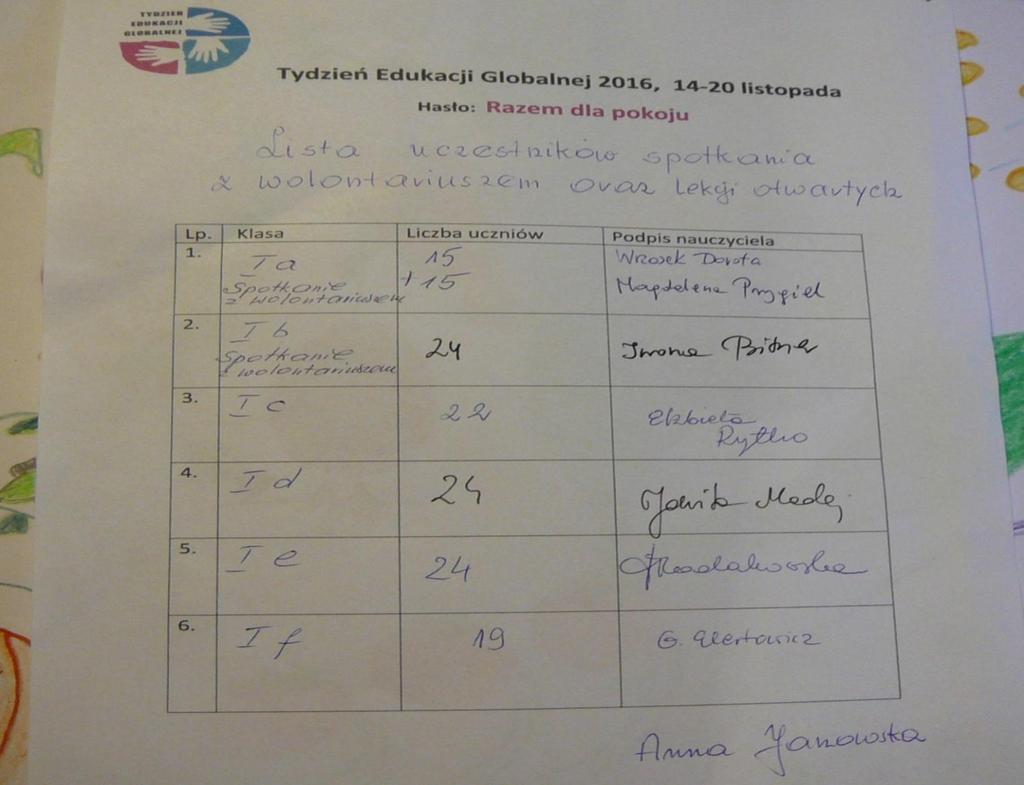 TYDZIEŃ
EDUKACJI
GLOBALNEJ
Tydzień Edukacji Globalnej 2016, 14-20 listopada
Hasło: Razem dla pokoju
Lista uczestników spotkania
z wolontariuszem oraz lekcji otwartych
Lp. Klasa Liczba uczniów Podpis nauczyciela
1. I a 15 Wrosek Dorota
Spotkanie +15 Magdalena Przygiel
z wolontariuszem
2. I b 24 Iwona Bitner
Spotkanie
z wolontariuszem
3. I c 22 Elżbieta
Rytko
4. I d 24 Medej
5. I e 24
6. I f 19 G.
Anna Janowska